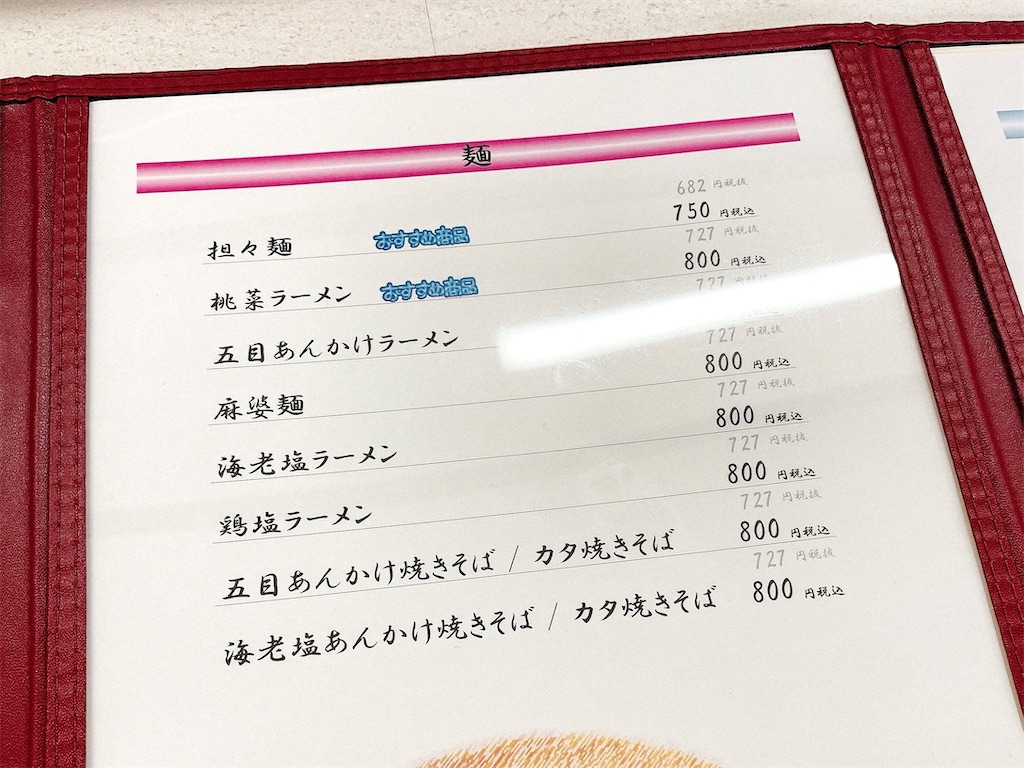 麺
682 円税抜
担々麺 おすすめ商品 750 円税込
727 円税抜
桃菜ラーメン おすすめ商品 800 円税込
727 円税抜
五目あんかけラーメン
727 円税抜
麻婆麺 800 円税込
727 円税抜
海老塩ラーメン 800 円税込
727 円税抜
鶏塩ラーメン 800 円税込
727 円税抜
五目あんかけ焼きそば / カタ焼きそば 800 円税込
727 円税抜
海老塩あんかけ焼きそば / カタ焼きそば 800 円税込